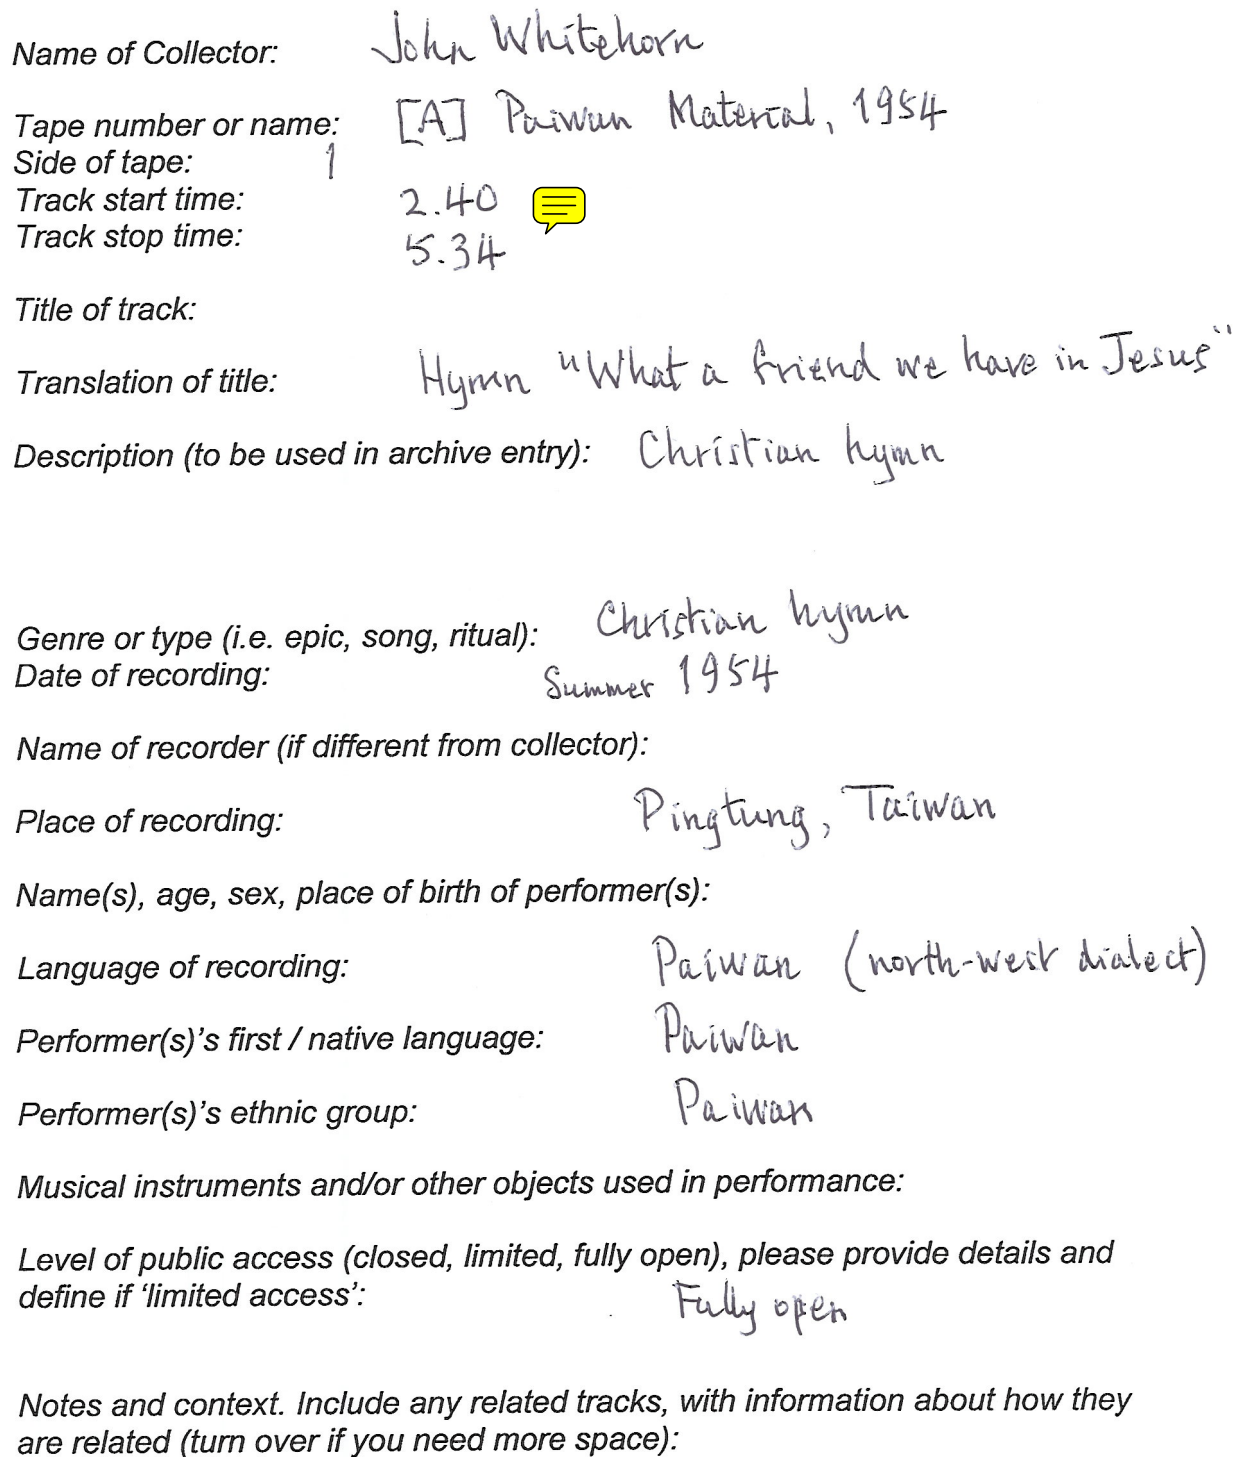 Name of Collector: John Whitehorn
Tape number or name: [A] Paiwan Material, 1954
Side of tape: 1
Track start time: 2.40
Track stop time: 5.34
Title of track:
Translation of title: Hymn "What a friend we have in Jesus"
Description (to be used in archive entry): Christian hymn
Genre or type (i.e. epic, song, ritual): Christian hymn
Date of recording: Summer 1954
Name of recorder (if different from collector):
Place of recording: Pingtung, Taiwan
Name(s), age, sex, place of birth of performer(s):
Language of recording: Paiwan (north-west dialect)
Performer(s)'s first / native language: Paiwan
Performer(s)'s ethnic group: Paiwan
Musical instruments and/or other objects used in performance:
Level of public access (closed, limited, fully open), please provide details and
define if 'limited access': Fully open
Notes and context. Include any related tracks, with information about how they
are related (turn over if you need more space):